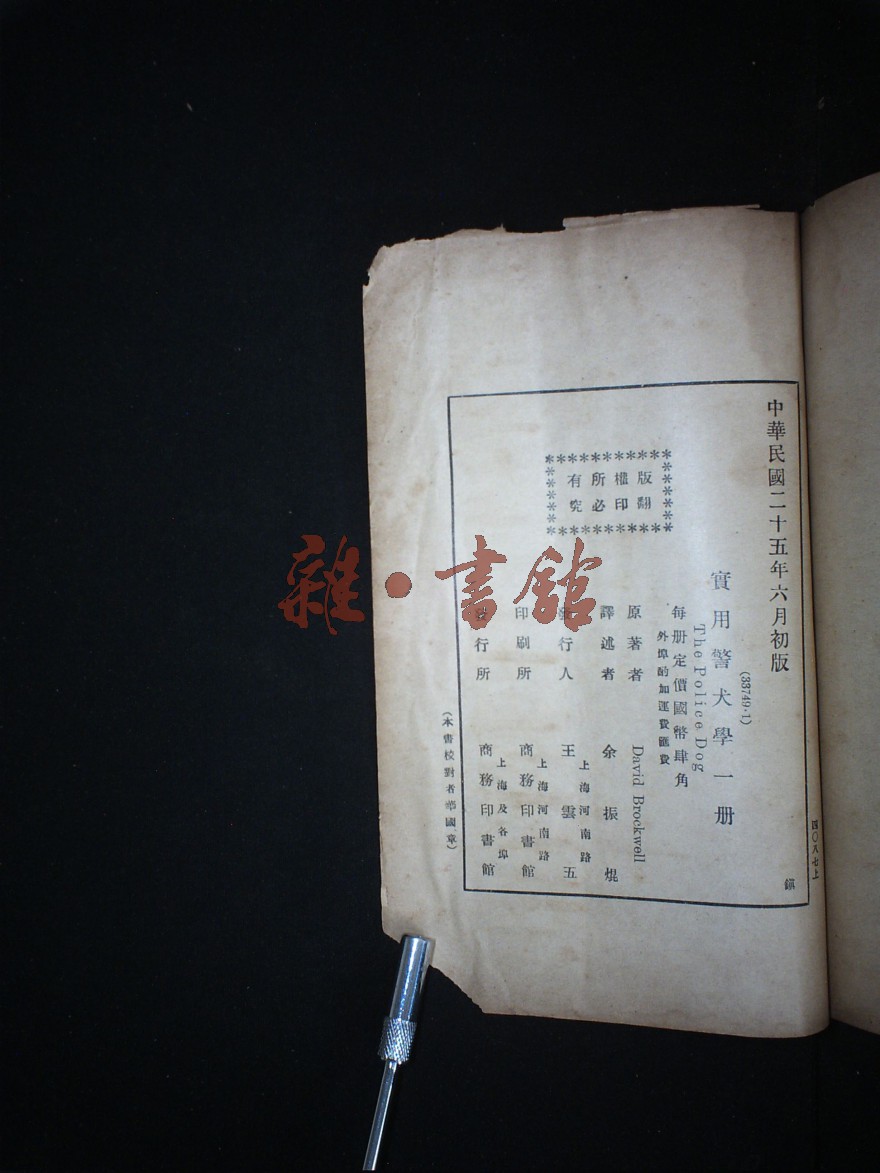 中華民國二十五年六月初版
四〇八七上
(33749·1)
實用警犬學一册
The Police Dog
每册定價國幣肆角
外埠酌加運費匯費
版權所有
翻印必究
原著者 David Brockwell
譯述者 余振焜
發行人 王雲五
上海河南路
印刷所 商務印書館
上海河南路
發行所 商務印書館
上海及各埠
(本書校對者華國章)
鎭
雜·書館